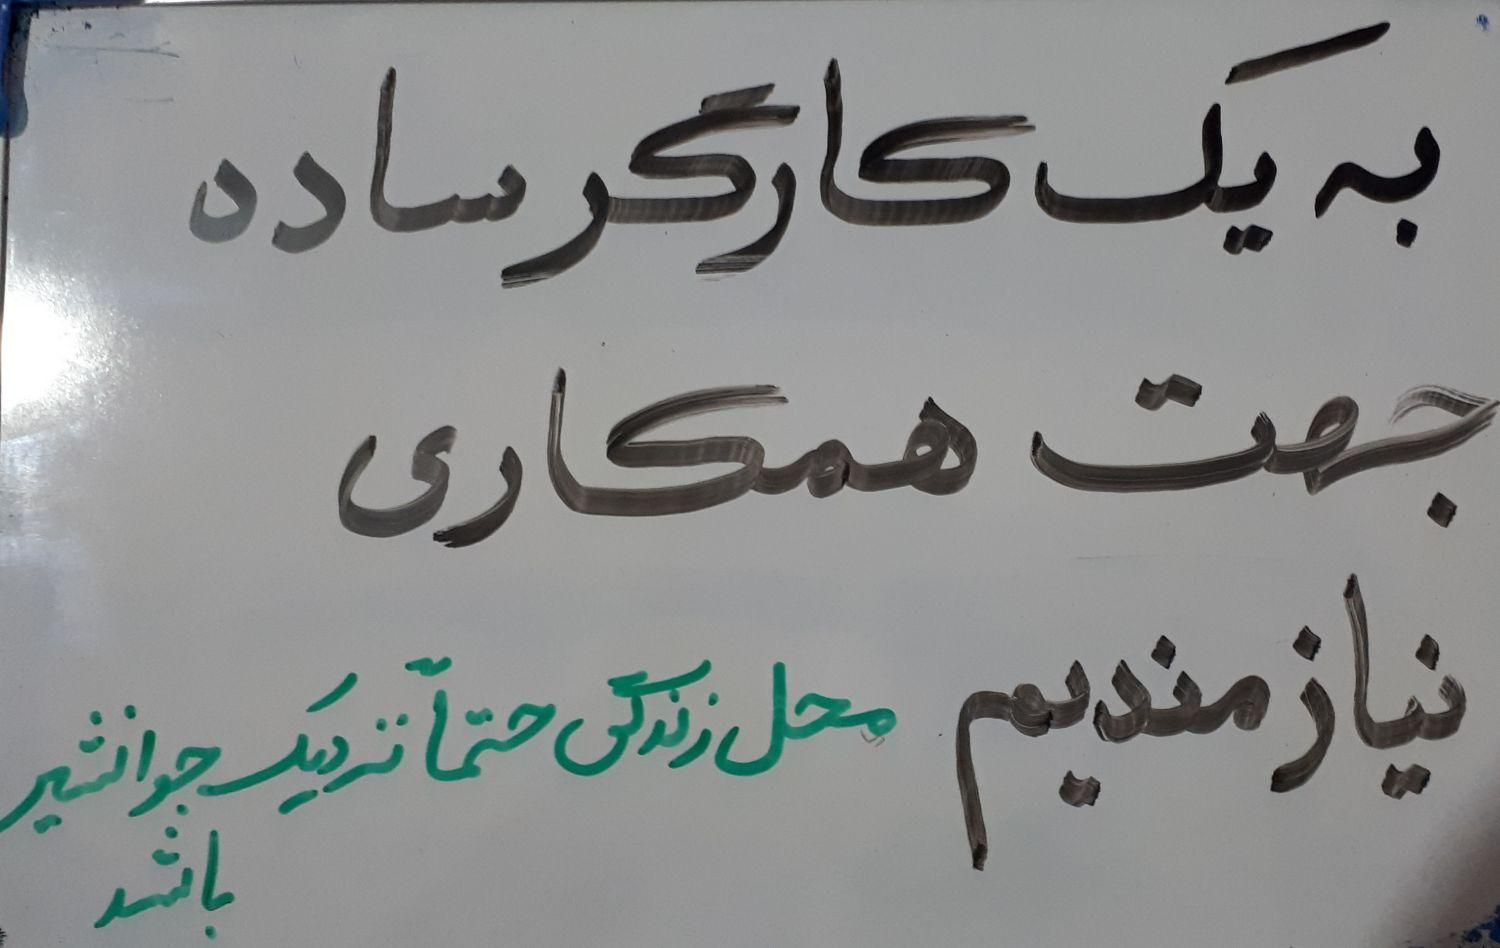 به یک کارگر ساده
جهت همکاری
نیازمندیم
محل زندگی حتماً نزدیک جوانشیر
باشد